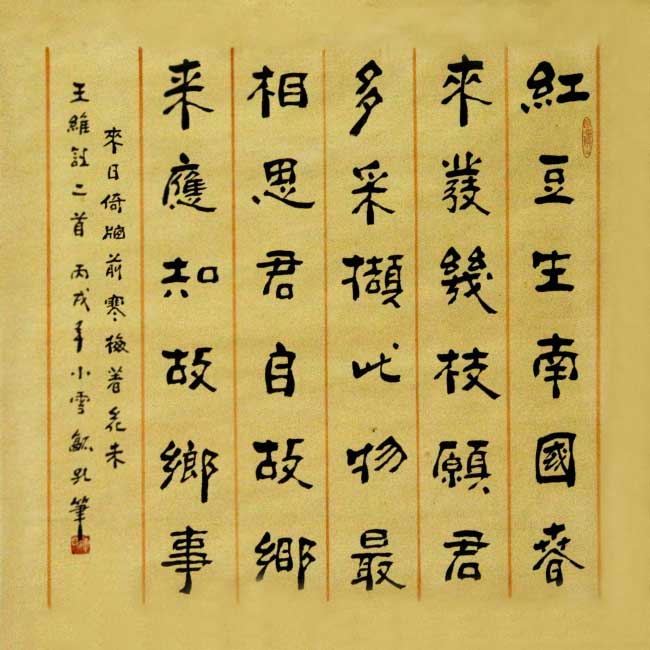 紅豆生南國春
來發幾枝願君
多采擷此物最
相思君自故鄉
来應知故鄉事
來日倚牕前寒梅着花未
王維詩二首 丙戌年小雪 筆